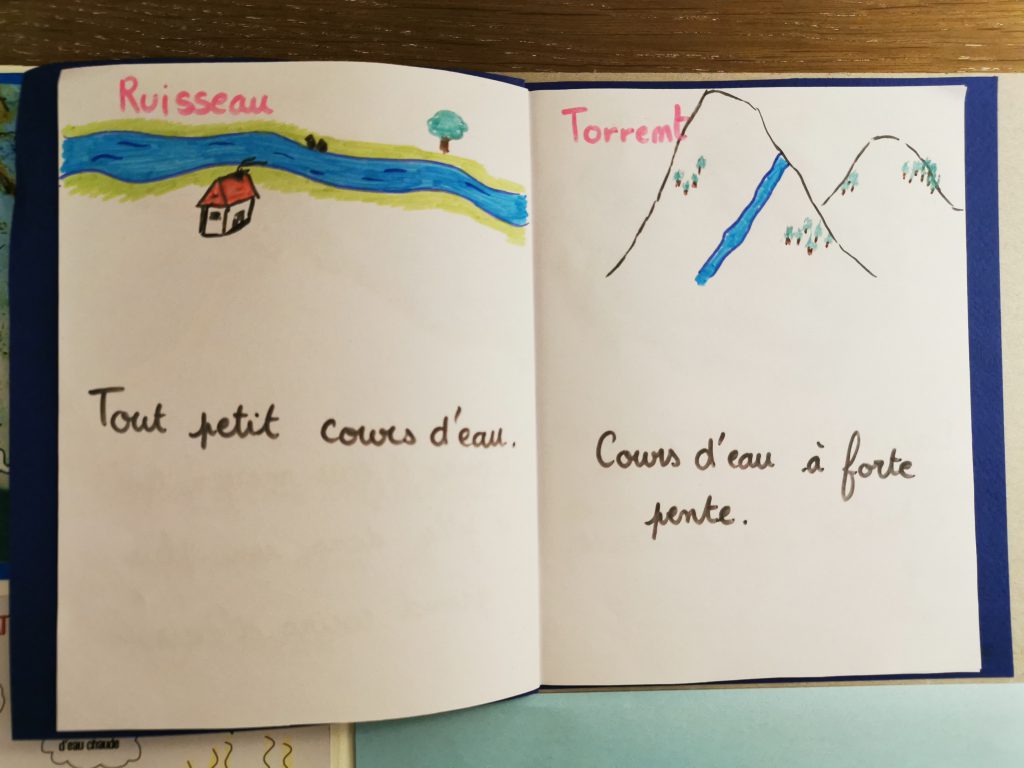 Ruisseau
Tout petit cours d'eau.
Torremt
Cours d'eau à forte
pente.
d'eau chaude